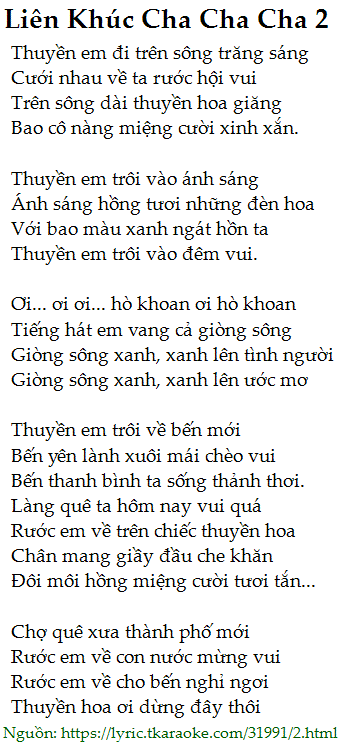 Liên Khúc Cha Cha Cha 2
Thuyền em đi trên sông trăng sáng
Cưới nhau về ta rước hội vui
Trên sông dài thuyền hoa giăng
Bao cô nàng miệng cười xinh xắn.
Thuyền em trôi vào ánh sáng
Ánh sáng hồng tươi những đèn hoa
Với bao màu xanh ngát hồn ta
Thuyền em trôi vào đêm vui.
Ơi... ơi ơi... hò khoan ơi hò khoan
Tiếng hát em vang cả giòng sông
Giòng sông xanh, xanh lên tình người
Giòng sông xanh, xanh lên ước mơ
Thuyền em trôi về bến mới
Bến yên lành xuôi mái chèo vui
Bến thanh bình ta sống thảnh thơi.
Làng quê ta hôm nay vui quá
Rước em về trên chiếc thuyền hoa
Chân mang giầy đầu che khăn
Đôi môi hồng miệng cười tươi tắn...
Chợ quê xưa thành phố mới
Rước em về con nước mừng vui
Rước em về cho bến nghỉ ngơi
Thuyền hoa ơi dừng đây thôi
Nguồn: https://lyric.tkaraoke.com/31991/2.html